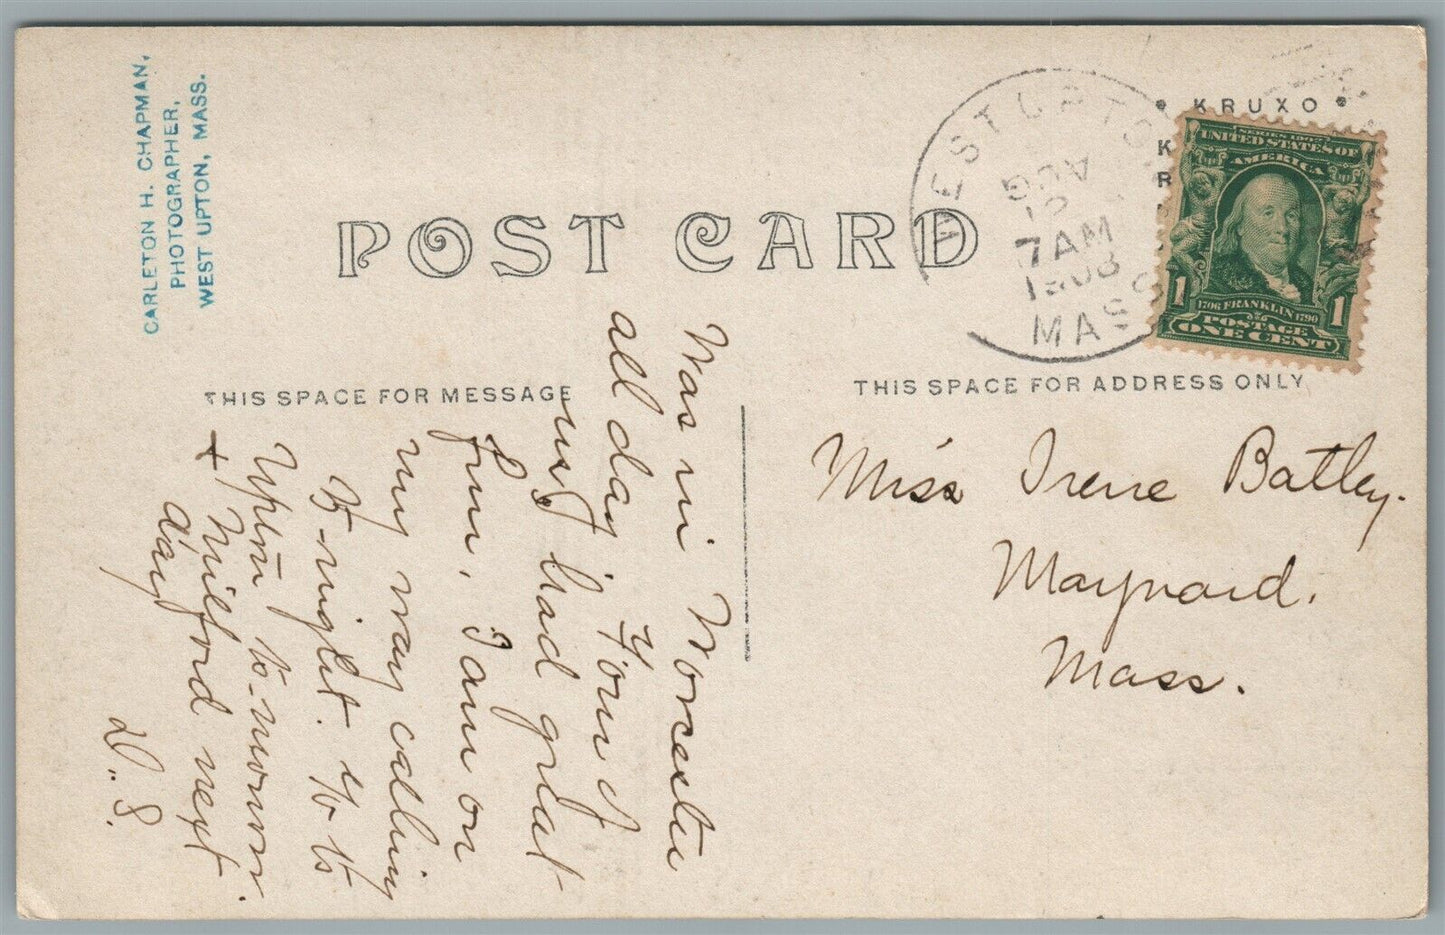 CARLETON H. CHAPMAN,
PHOTOGRAPHER,
WEST UPTON, MASS.
POST CARD
WEST UPTON
AUG
12
7 AM
1908
MASS
KRUXO
K
R
SERIES 1902
UNITED STATES OF
AMERICA
1 1706 FRANKLIN 1790 1
POSTAGE
ONE CENT
THIS SPACE FOR MESSAGE
THIS SPACE FOR ADDRESS ONLY
Was in Worcester
all day Yom &
my had great
fun, I am on
my way calling
to-night. Yo to
Upton to-morrow.
+ Milford next
day
D. S.
Miss Irene Batley.
Maynard.
Mass.